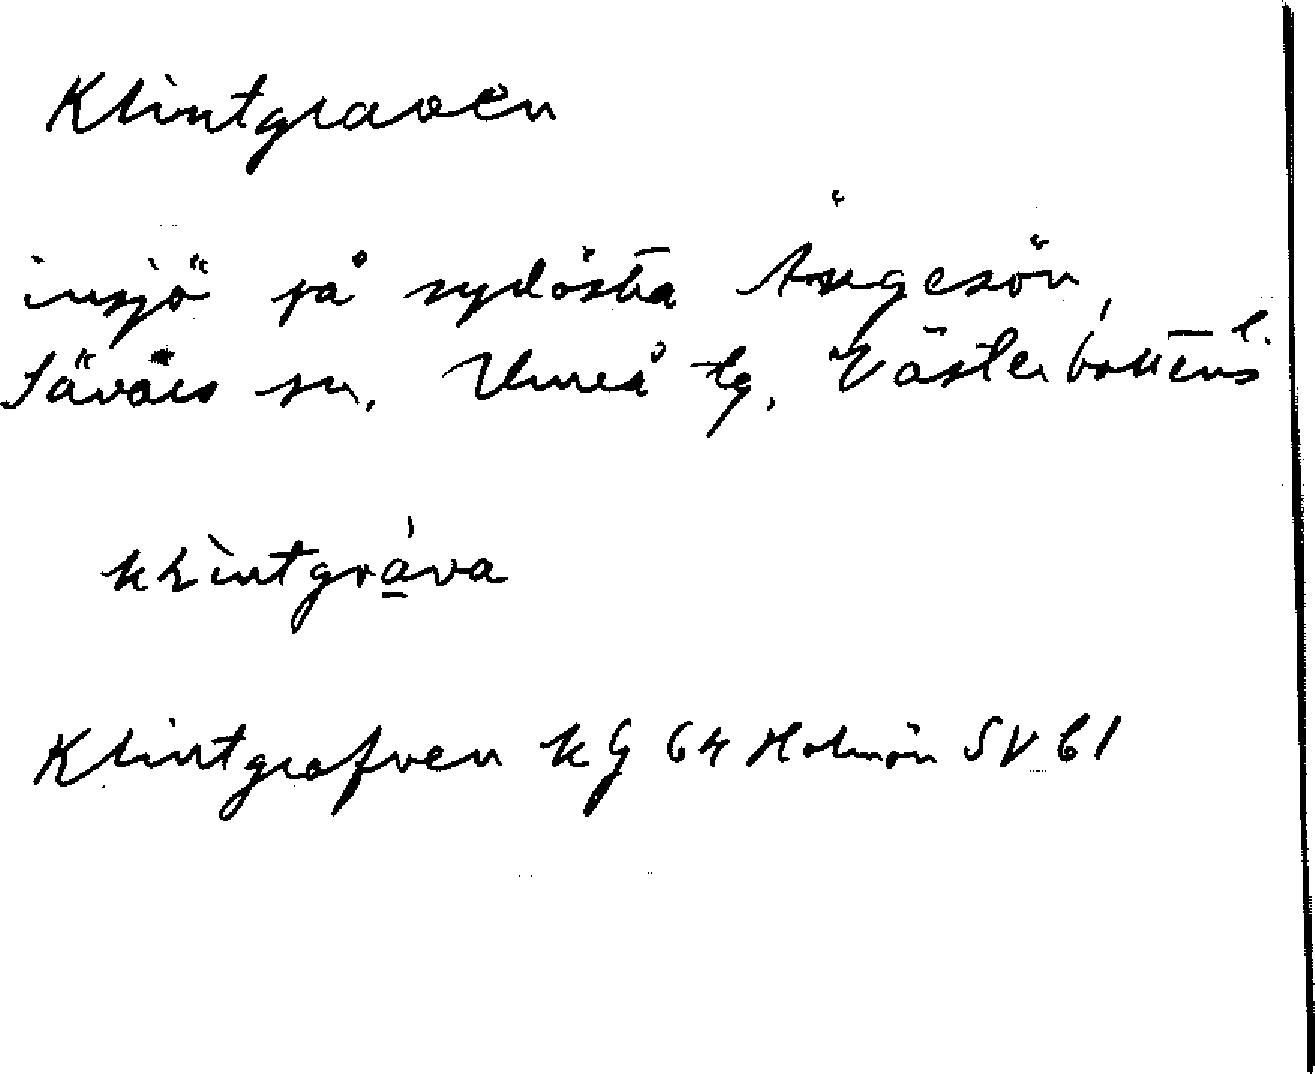 Klintgraven
insjö på sydöstra Ängesön,
Sävars sn, Umeå tg, Västerbottens l.
klintgrava
Klintgrafven kg 64 Holmön SV 61